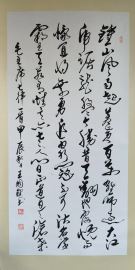 鐘山風雨起蒼黃百萬雄師過大江
虎踞龍盤今勝昔天翻地覆
慨而慷宜將剩勇追窮寇不可沽名學
霸王天若有情天亦老人間正道是滄桑
毛主席七律一首甲辰